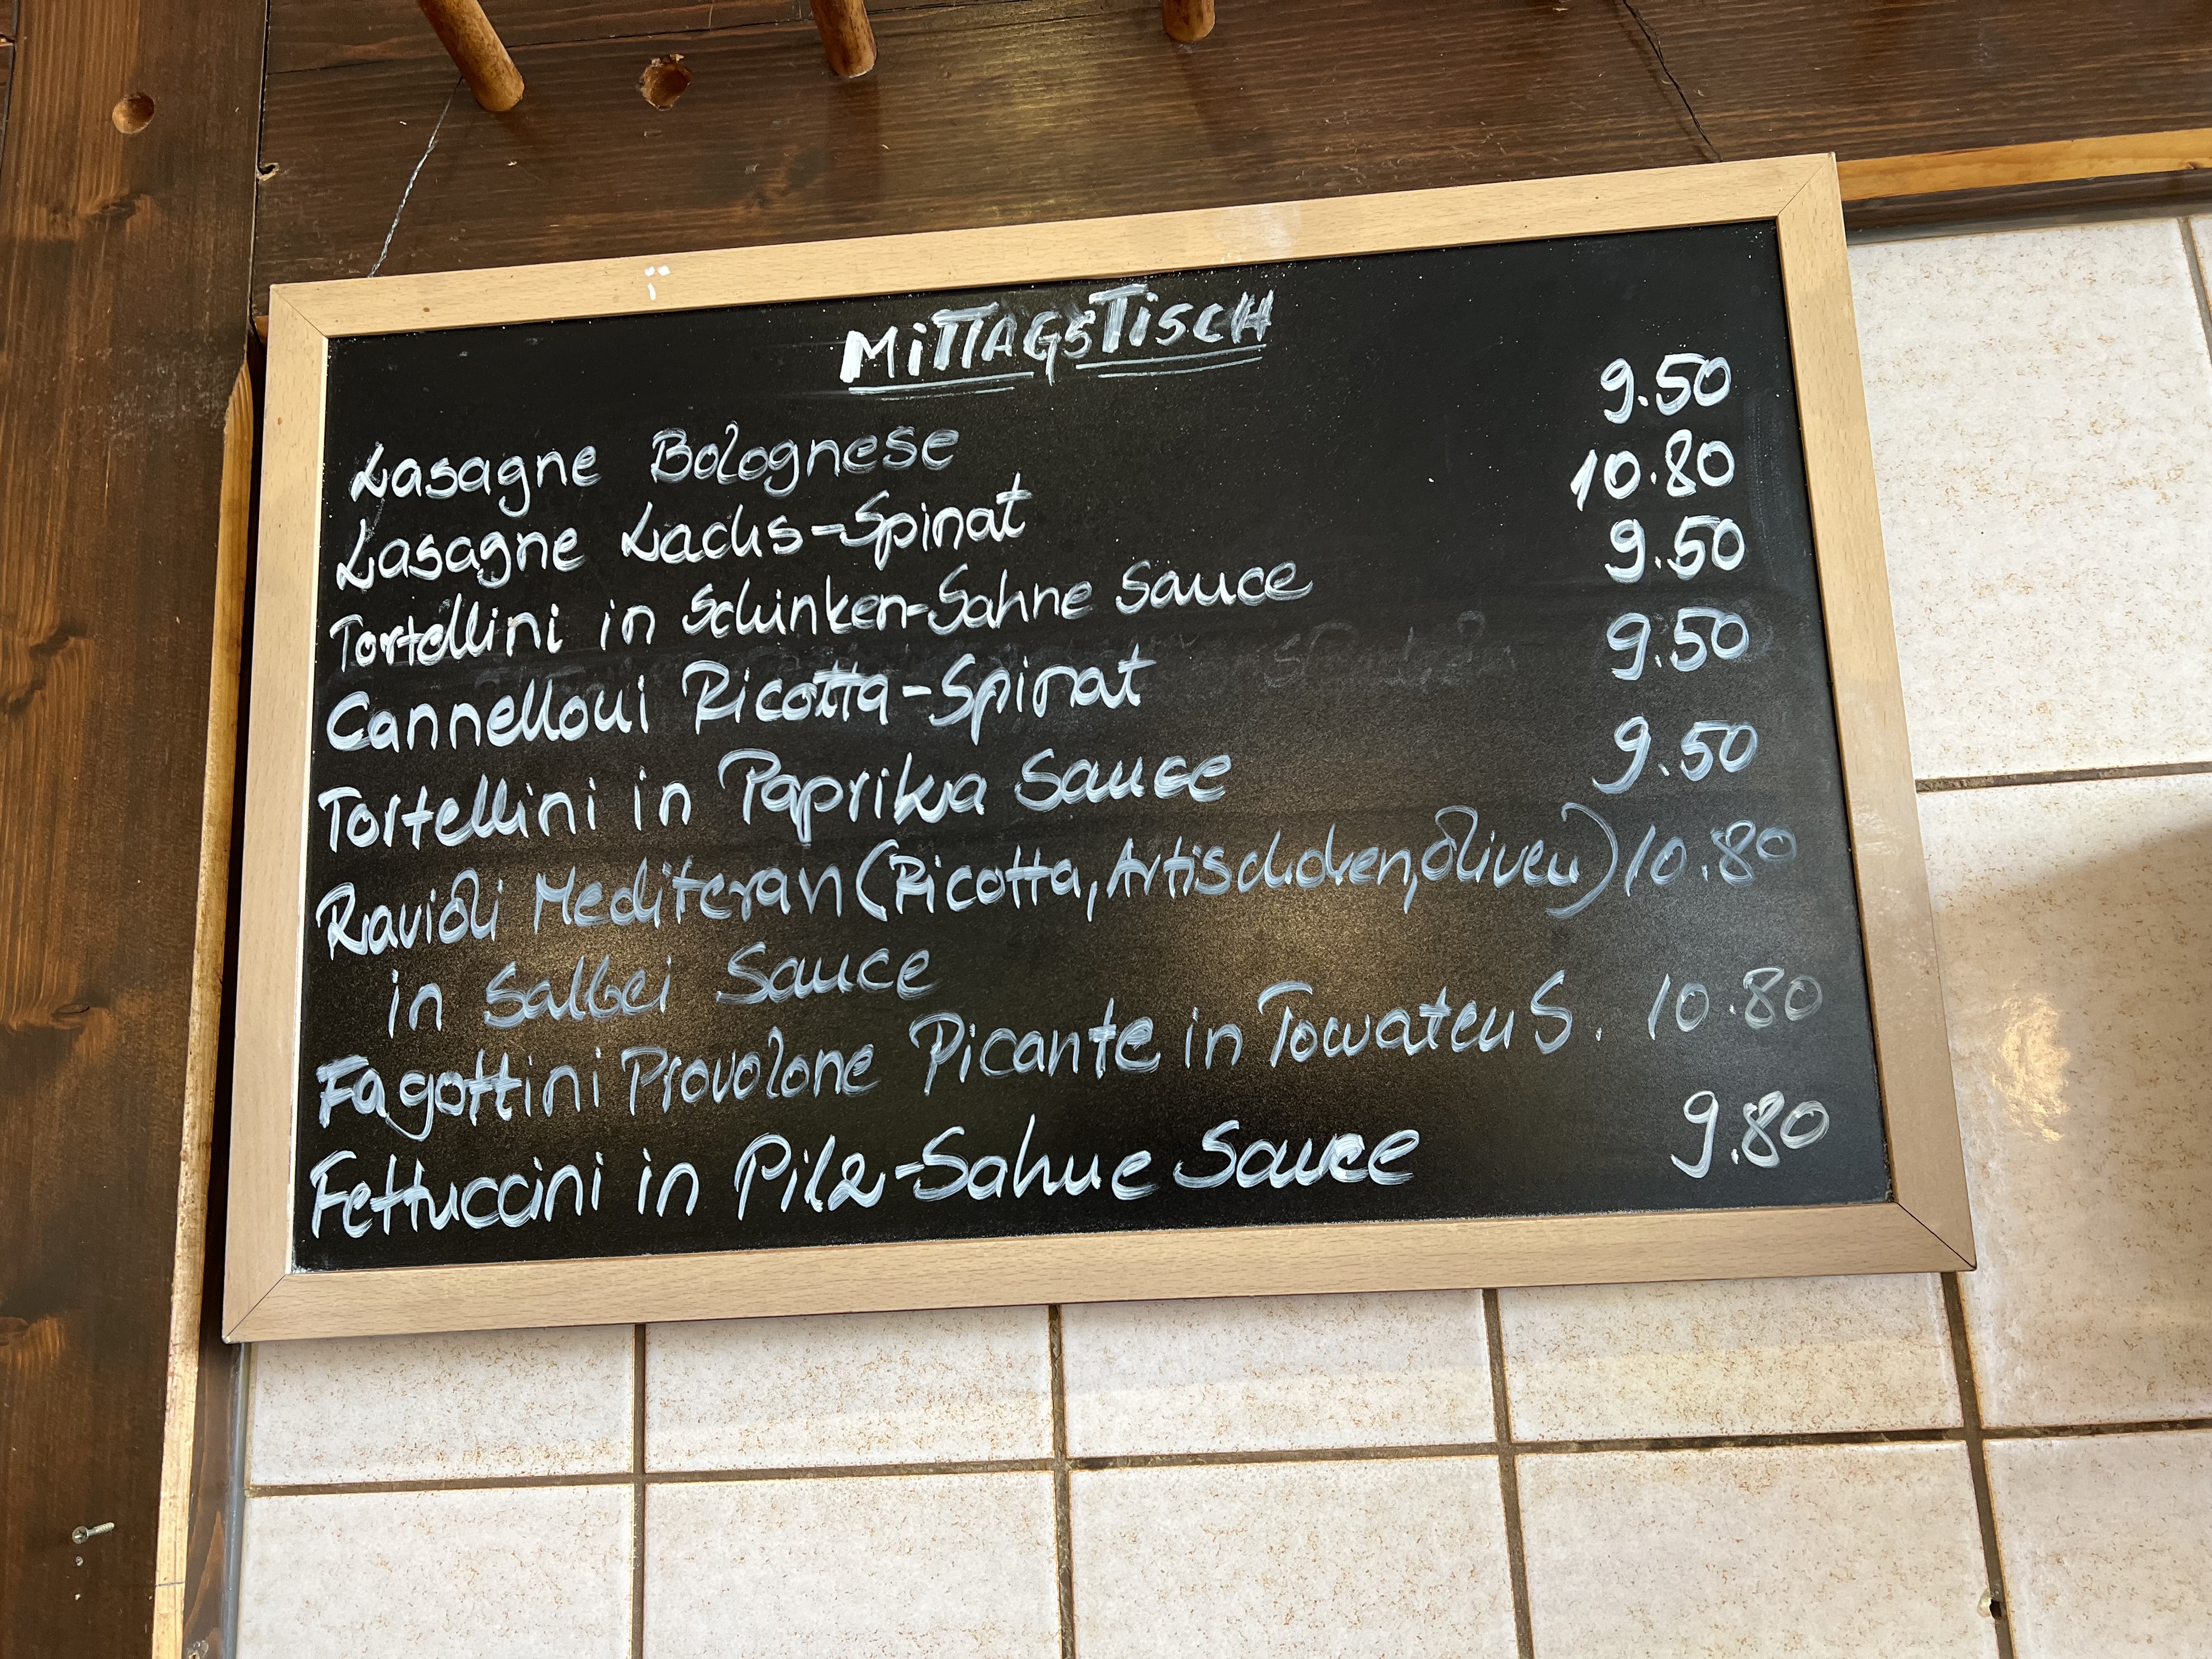 MiTTAGSTiSCH
Lasagne Bolognese 9.50
Lasagne Lachs-Spinat 10.80
Tortellini in Schinken-Sahne Sauce 9.50
Cannelloni Ricotta-Spinat 9.50
Tortellini in Paprika Sauce 9.50
Ravioli Mediteran (Ricotta, Artischoken, Oliven) 10.80
in Salbei Sauce
Fagottini Provolone Picante in Tomaten S. 10.80
Fettuccini in Pilz-Sahne Sauce 9.80